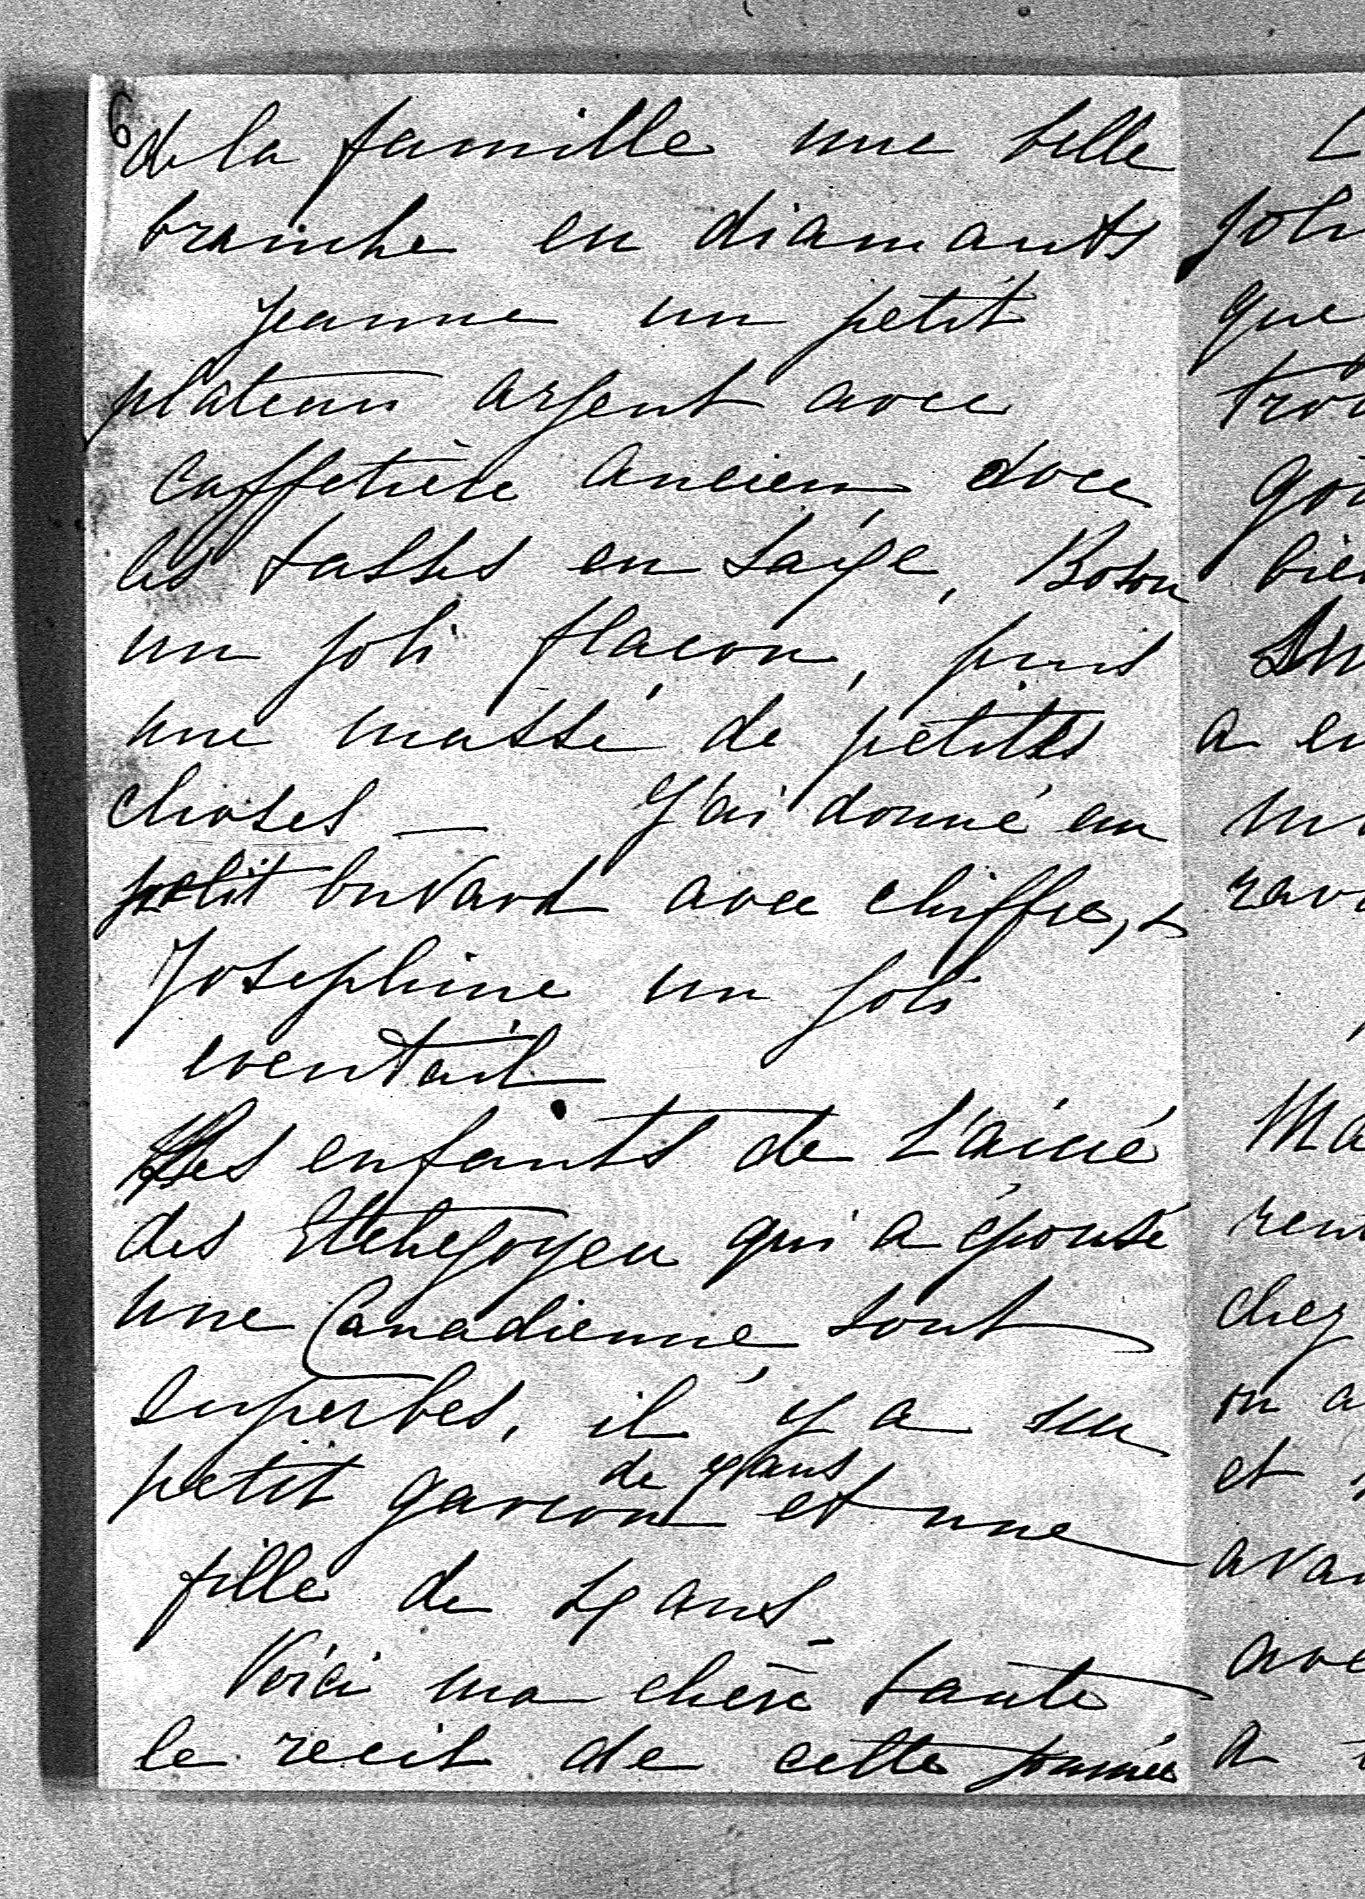 6
de la famille une belle
branche en diamants
Jeanne un petit
plateau argent avec
caffetière ancien avec
les tasses en saxe, Boson
un joli flacon, puis
une masse de petites
choses — J'ai donné un
petit buvard avec chiffre, &
Josephine un joli
eventail
Les enfants de L'ainé
des Etchegoyen qui a épousé
une Canadienne, sont
superbes, il y a un
de ans
petit garçon et une
fille de 4 ans
Voici ma chère tante
le recit de cette journée
que
chez
on a
et
a